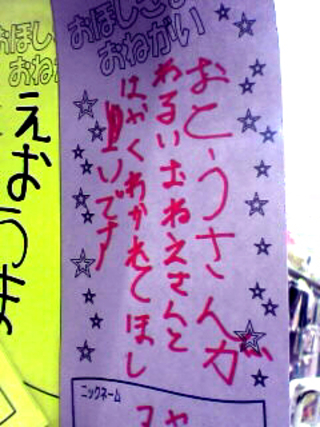 おほしさま
おねがい
おとうさんが
わるいおねえさんと
はやくわかれてほし
いいです
ニックネーム
おほし
おねが
えおうま